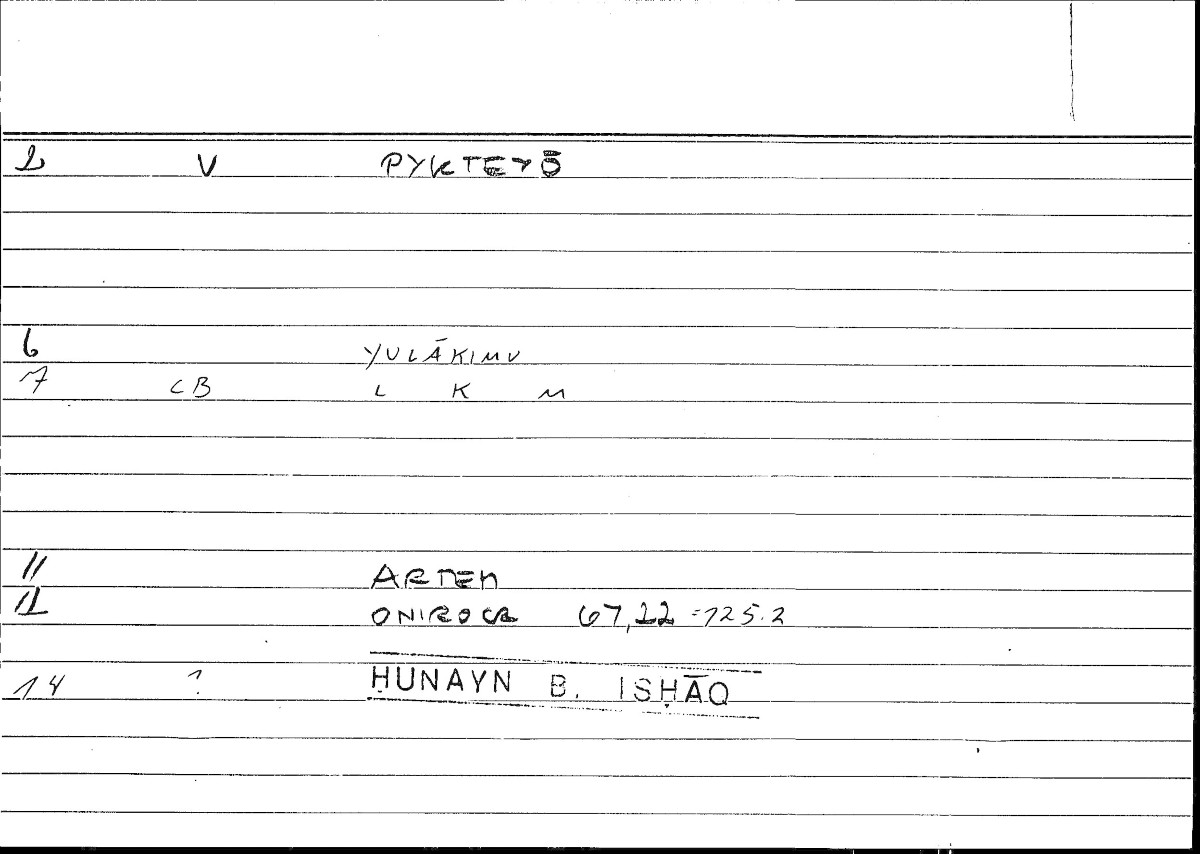 2 V PYKTEYŌ
6 YULĀKIMU
7 CB L K M
11 ARTEM
12 ONIROCR 67,22 =125.2
14 ? ḤUNAYN B. ISḤĀQ